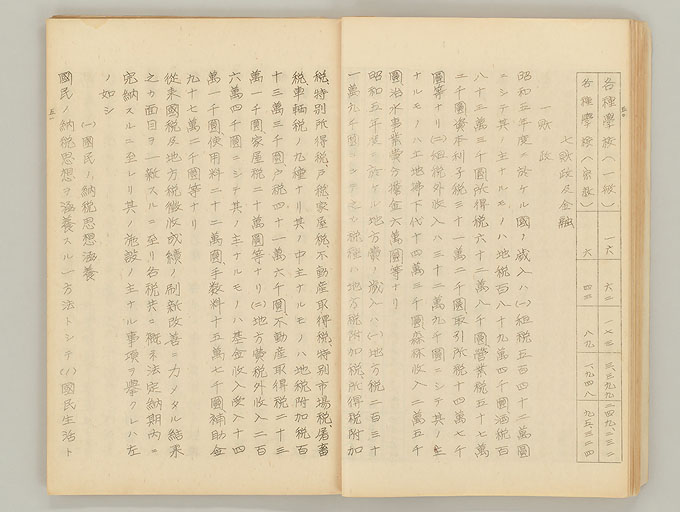 各種學校(一般)
各種學校(宗教)
七財政及金融
一財政
昭和五年度ニ於ケル國ノ歳入ハ(一)租税五百四十二萬圓
ニシテ其ノ主ナルモノハ地税百八十九萬四千圓酒税百
八十三萬三千圓所得税六十二萬八千圓營業税五十七萬
二千圓資本利子税三十一萬二千圓取引所税十四萬七千
圓等ナリ(二)租税外收入ハ三十二萬九千圓ニシテ其ノ主
ナルモノハ土地拂下代十四萬三千圓森林收入二萬五千
國治水事業費分擔金六萬圓等ナリ
昭和五年度ニ於ケル地方費ノ歳入ハ(一)地方税二百三十
一萬九千圓ニシテ之ガ税種ハ地方税附加税所得税附加
税特別所得税戸税家屋税不動産取得税特別市場税屠畜
税車輛税ノ九種ナリ其ノ中主ナルモノハ地税附加税百
十三萬三千圓戸税四十一萬六千圓不動産取得税二十三
萬一千圓家屋税二十萬圓等ナリ(二)地方費税外收入二百
六萬四千圓ニシテ其ノ主ナルモノハ基金收入受入十四
萬一千圓使用料二十二萬圓手數料十五萬七千圓補助金
九十七萬二千圓等ナリ
從來國税及地方税徴收成績ノ刷新改善ニ力メタル結果
之ガ面目ヲ一新スルニ至リ各税共ニ概ネ法定納期内ニ
完納スルニ至レリ其ノ施設ノ主ナル事項ヲ擧クレハ左
ノ如シ
(一)國民ノ納税思想涵養
國民ノ納税思想ヲ涵養スル一方法トシテ(イ)國民生活ト